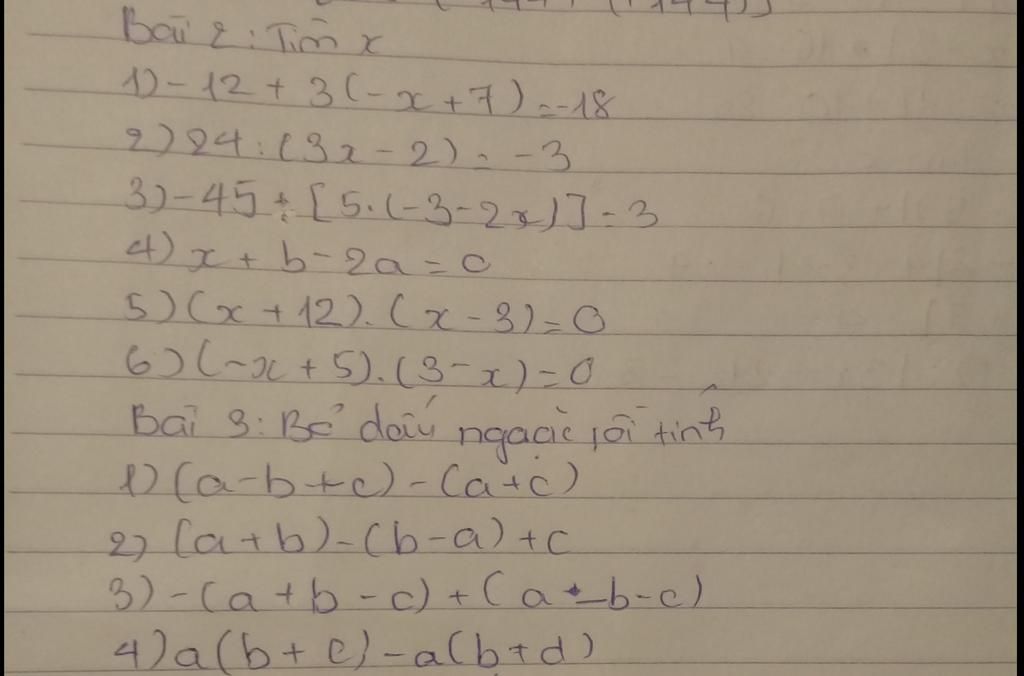 Bài 2: Tìm x
1) -12 + 3(-x+7) = -18
2) 24 : (3x - 2) = -3
3) -45 : [5.(-3-2x)] = 3
4) x + b - 2a = c
5) (x + 12). (x - 3) = 0
6) (-x + 5). (3 - x) = 0
Bài 3: Bỏ dấu ngoặc rồi tính
1) (a - b + c) - (a + c)
2) (a + b) - (b - a) + c
3) -(a + b - c) + (a - b - c)
4) a(b + c) - a(b + d)